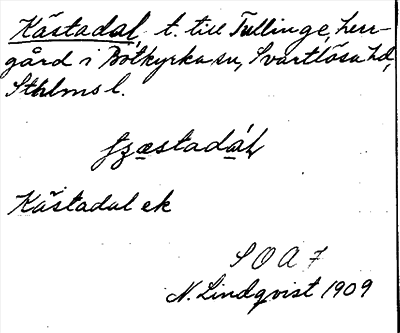 Kästadal, t. till Tullinge, herr-
gård i Botkyrka sn, Svartlösa hd,
Sthlms l.
Kästadal ek
S O A 7
N. Lindqvist 1909